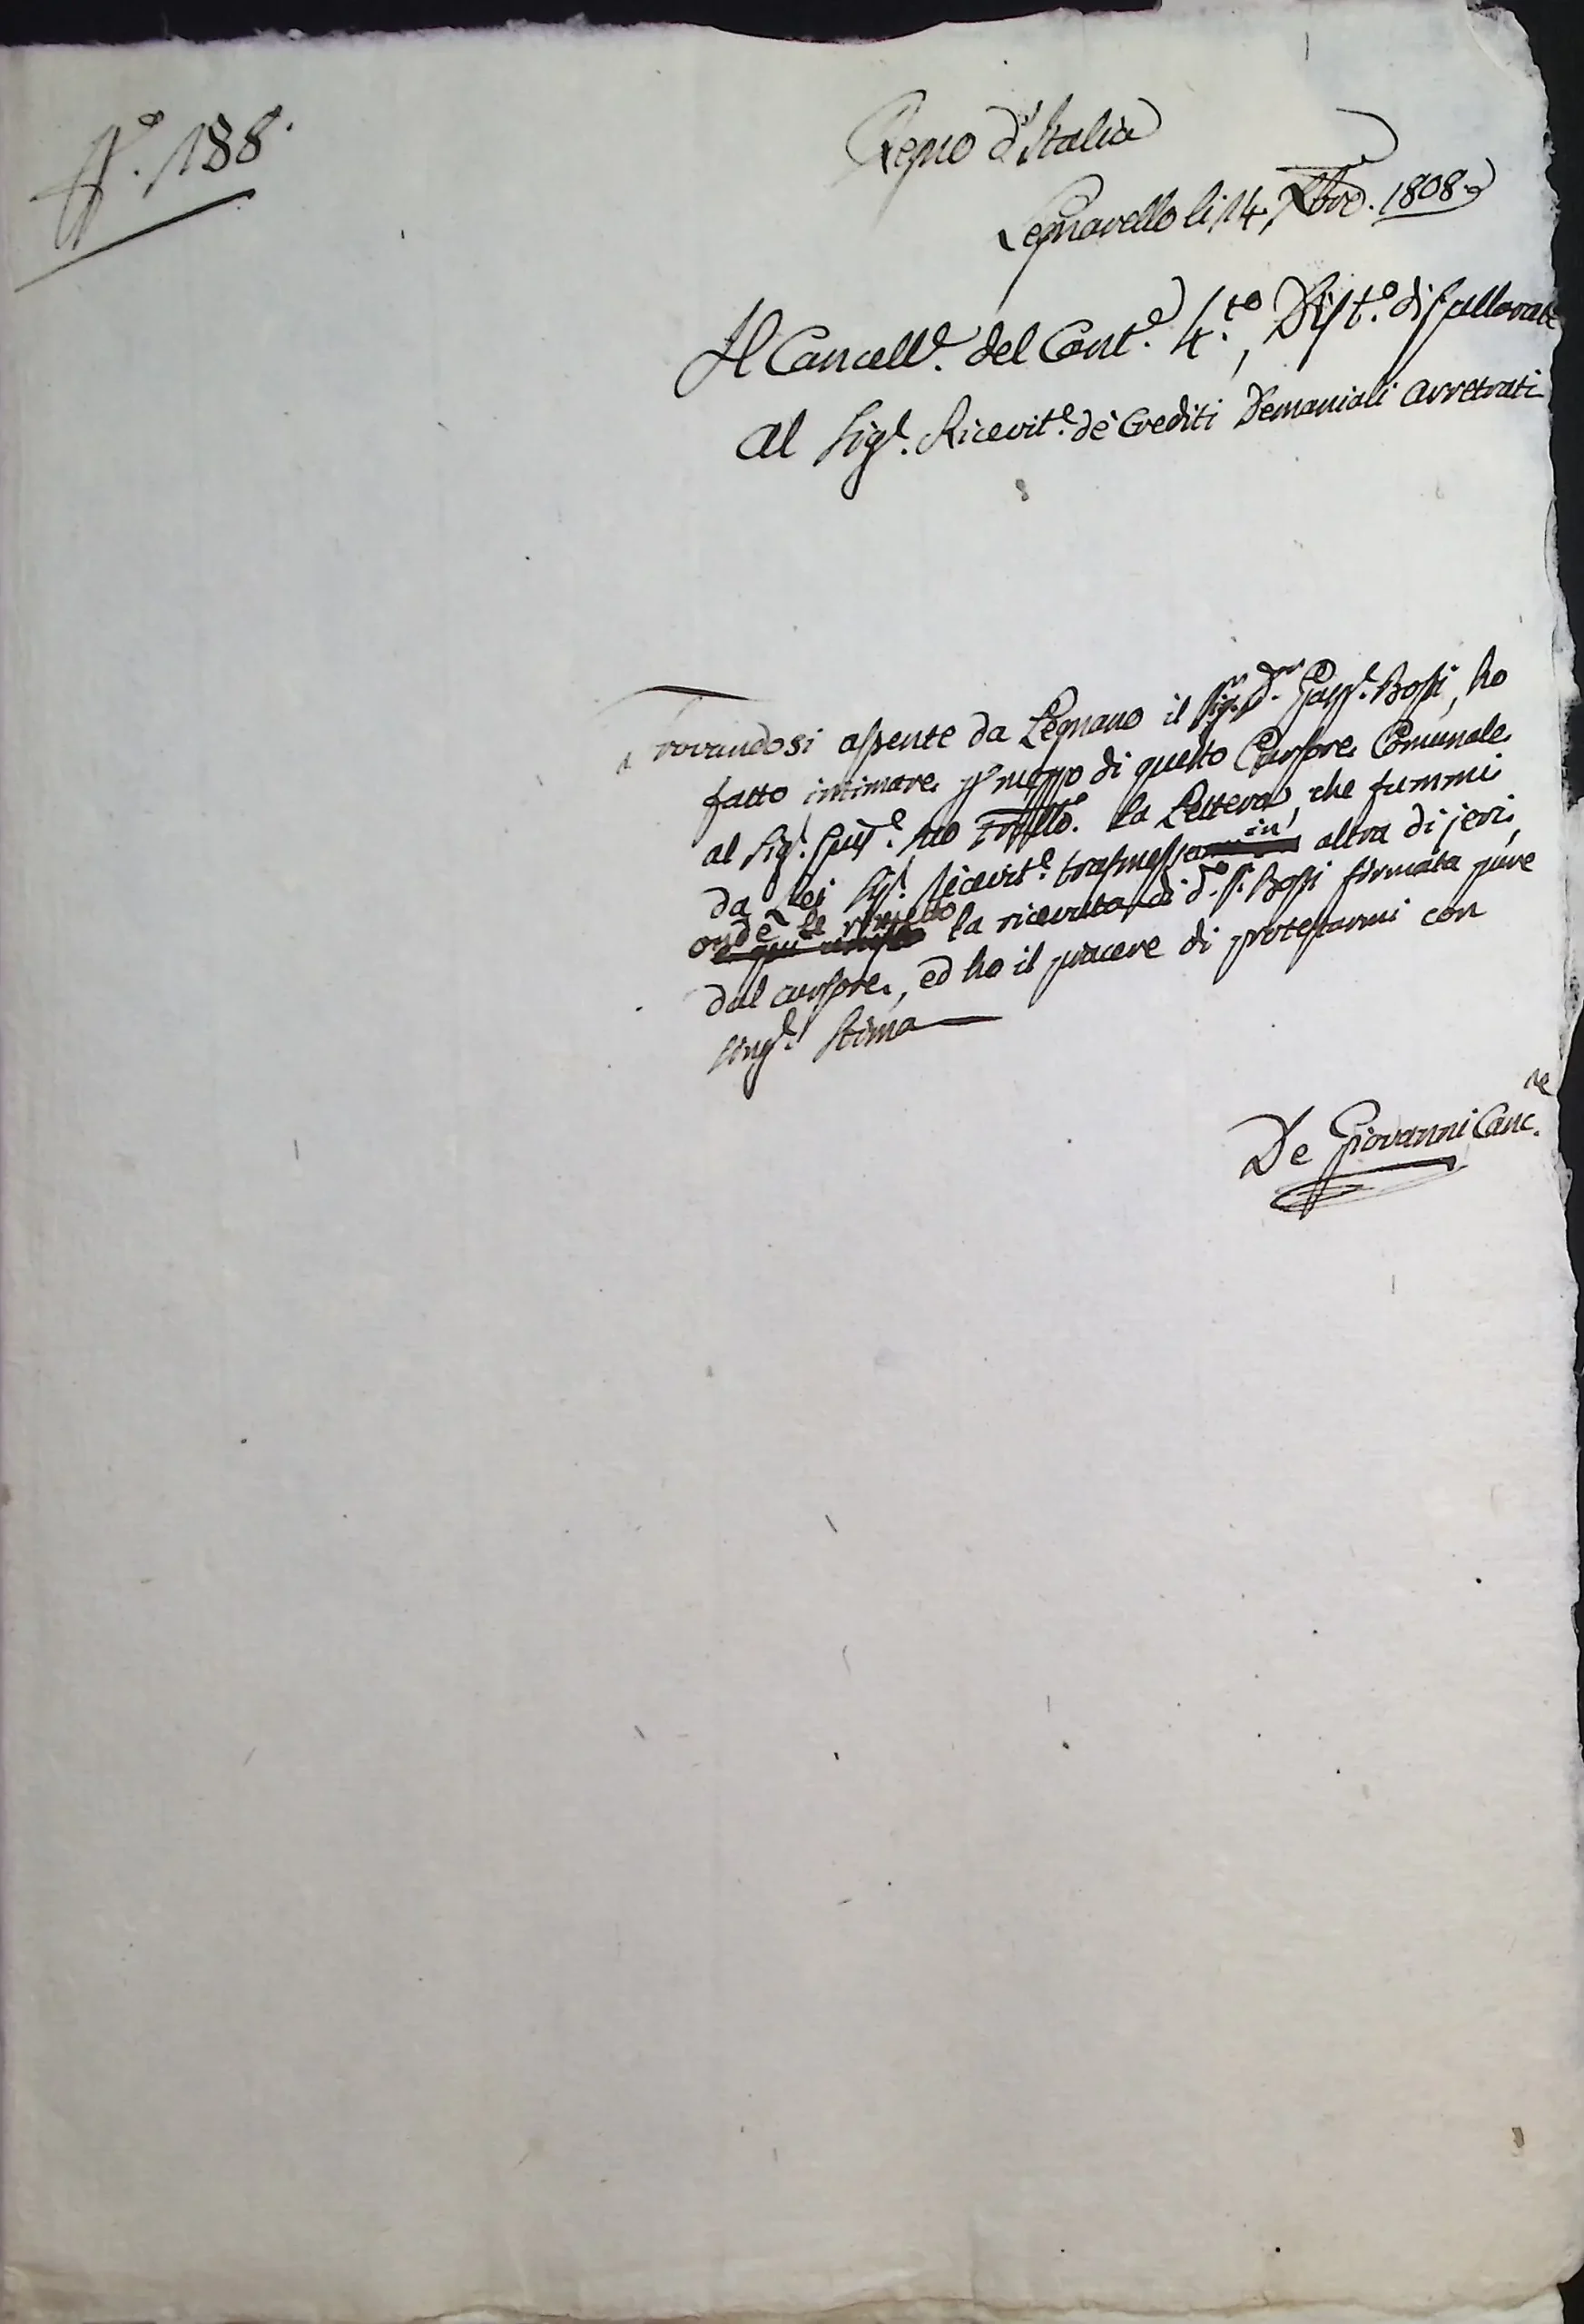 N.° 188.
Regno d'Italia
Legnarello li 14. Xbre. 1808.
Il Cancell.e del Cant.e 4.to, Dist.o di Gallarate
Al Sig.r Ricevit.e de Crediti Demaniali arretrati
Trovandosi assente da Legnano il Sig.r D.r Gasp.e Bossi, ho
fatto intimare p. mezzo di questo Cursore Comunale
al Sig.r Gius.e suo Frãtello. la Lettera, che fummi
da Lei Sig.r Ricevit.e trasmessa in altra di jeri,
onde le rimetto la ricevuta di d.o S.r Bossi firmata pure
dal cursore, ed ho il piacere di protestarmi con
sing.e stima
De Giovanni Canc.re